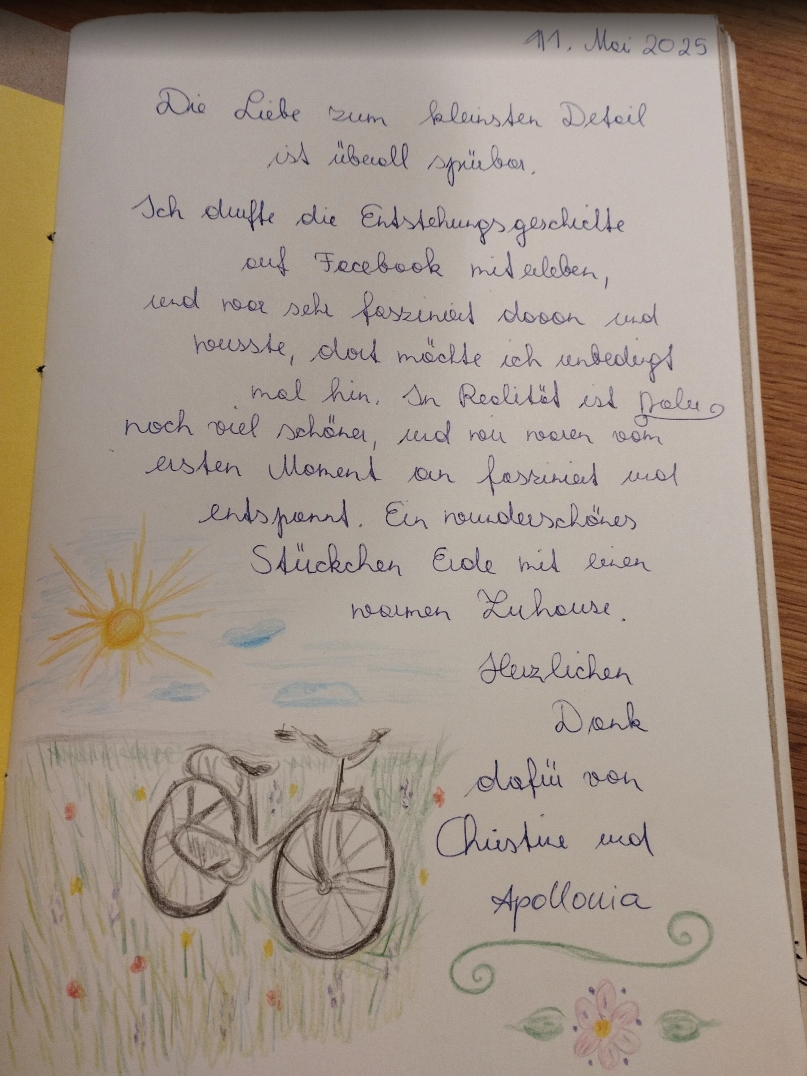 11. Mai 2025
Die Liebe zum kleinsten Detail
ist überall spürbar.
Ich durfte die Entstehungsgeschichte
auf Facebook miterleben,
und war sehr fasziniert davon und
wusste, dort möchte ich unbedingt
mal hin. In Realität ist
noch viel schöner, und wir waren vom
ersten Moment an fasziniert und
entspannt. Ein wunderschönes
Stückchen Erde mit einen
warmen Zuhause.
Herzlichen
Dank
dafür von
Christine und
Apollonia